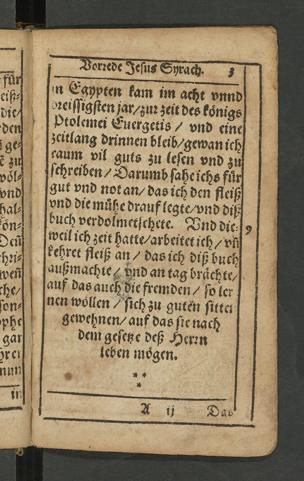 Vorrede Jesus Syrach. 3
in Egypten kam im acht vnnd
dreissigsten jar/zur zeit des königs
Ptolemei Euergetis / vnd eine
zeitlang drinnen bleib/gewan ich
raum vil guts zu lesen vnd zu
schreiben / Darumb sahe ichs für
gut vnd not an/ das ich den fleiß
vnd die mühe drauf legte/vnd diß
buch verdolmetschete. Vnd die-
weil ich zeit hatte/arbeitet ich / vñ
kehret fleiß an / das ich diß buch
außmachte / vnd an tag brächte/
auf das auch die fremden / so ler
nen wöllen / sich zu guten sitten
gewehnen/ auf das sie nach
dem gesetze deß Herrn
leben mögen.
* *
*
A ij Das